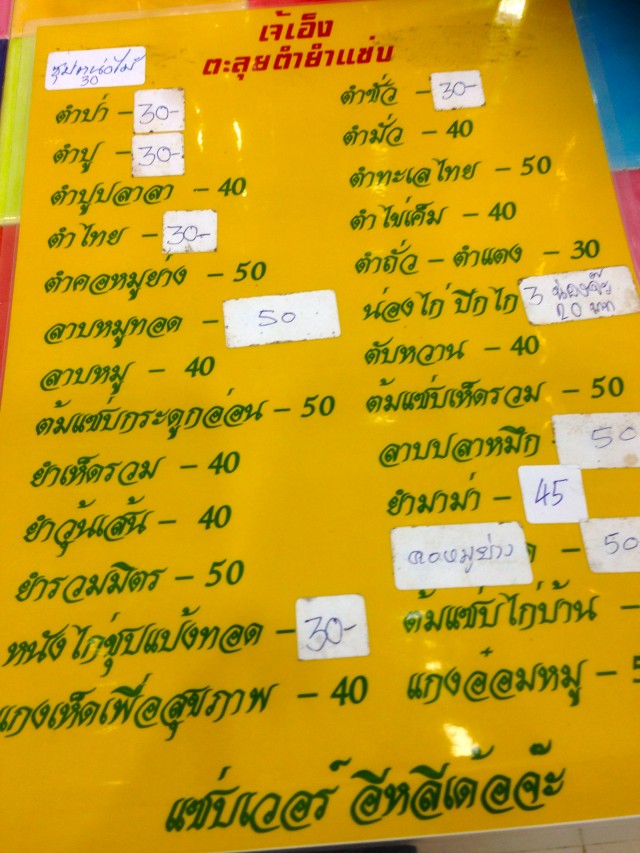 เจ้เอ็ง
ตะลุยตำยำแซ่บ
ซุปหน่อไม้
30
ตำป่า - 30-
ตำปู - 30-
ตำปูปลาลา - 40
ตำไทย - 30-
ตำคอหมูย่าง - 50
ลาบหมูทอด - 50
ลาบหมู - 40
ต้มแซ่บกระดูกอ่อน - 50
ยำเห็ดรวม - 40
ยำวุ้นเส้น - 40
ยำรวมมิตร - 50
หนังไก่ชุบแป้งทอด - 30-
แกงเห็ดเพื่อสุขภาพ - 40
ตำซั่ว - 30-
ตำมั่ว - 40
ตำทะเลไทย - 50
ตำไข่เค็ม - 40
ตำถั่ว - ตำแตง - 30
น่องไก่ ปีกไก่ 3
20 บาท
ตับหวาน - 40
ต้มแซ่บเห็ดรวม - 50
ลาบปลาหมึก 50
ยำมาม่า - 45
คอหมูย่าง - 50
ต้มแซ่บไก่บ้าน -
แกงอ่อมหมู -
แซ่บเวอร์ อีหลีเด้อจ๊ะ